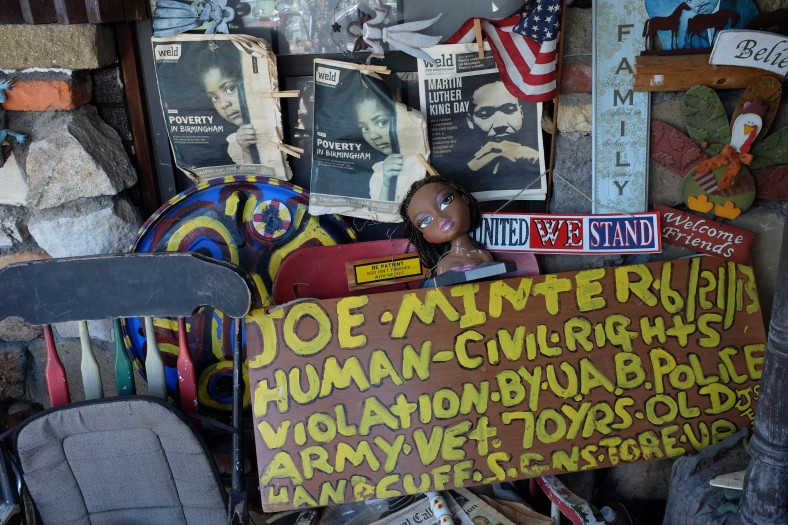 weld
POVERTY
IN BIRMINGHAM
weld
POVERTY
IN BIRMINGHAM
weld
MARTIN
LUTHER
KING DAY
FAMILY
Belie
UNITED WE STAND
Welcome
Friends
BE PATIENT
GOD ISN'T FINISHED
WITH ME YET
JOE·MINTER·6/21/13
HUMAN-CIVIL·RIGHTS
VIOLATION·BY·U.A.B.POLICE
ARMY·VET·70YRS·OLD
HANDCUFF·S.GNSTORE·